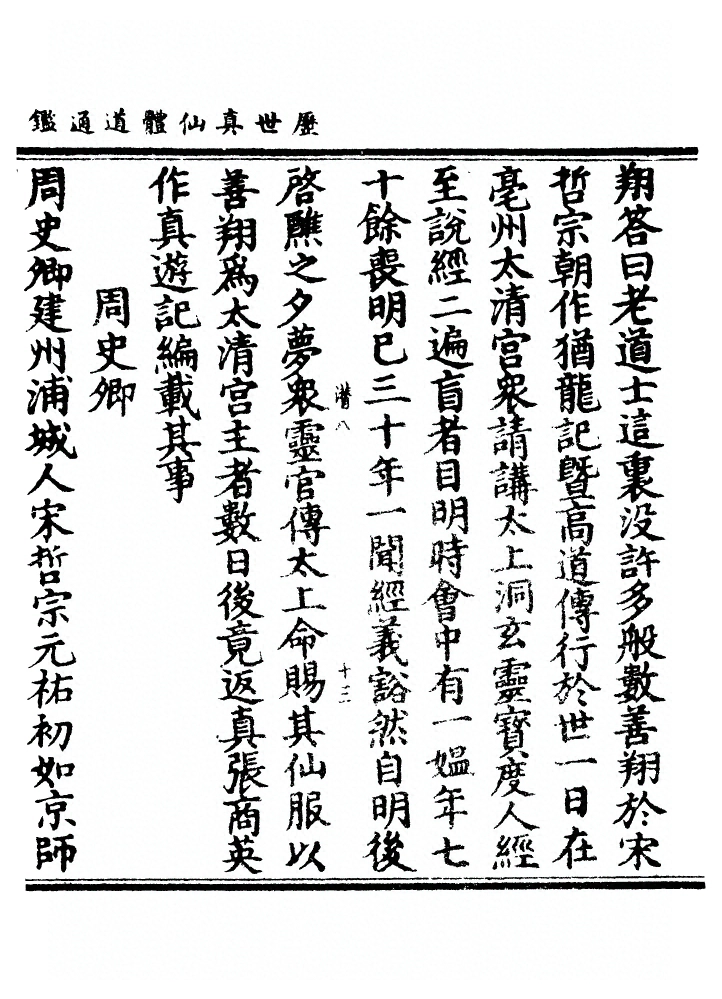 歷世真仙體道通鑑
翔答曰老道士這裏没許多般數善翔於宋
哲宗朝作猶龍記暨高道傳行於世一日在
亳州太清宫衆請講太上洞玄靈寶度人經
至說經二遍盲者目明時會中有一媪年七
十餘喪明已三十年一聞經義豁然自明後
潛八
十三
啓醮之夕夢衆靈官傳太上命賜其仙服以
善翔爲太清宫主者數日後竟返真張商英
作真遊記編載其事
周史卿
周史卿建州浦城人宋哲宗元祐初如京師